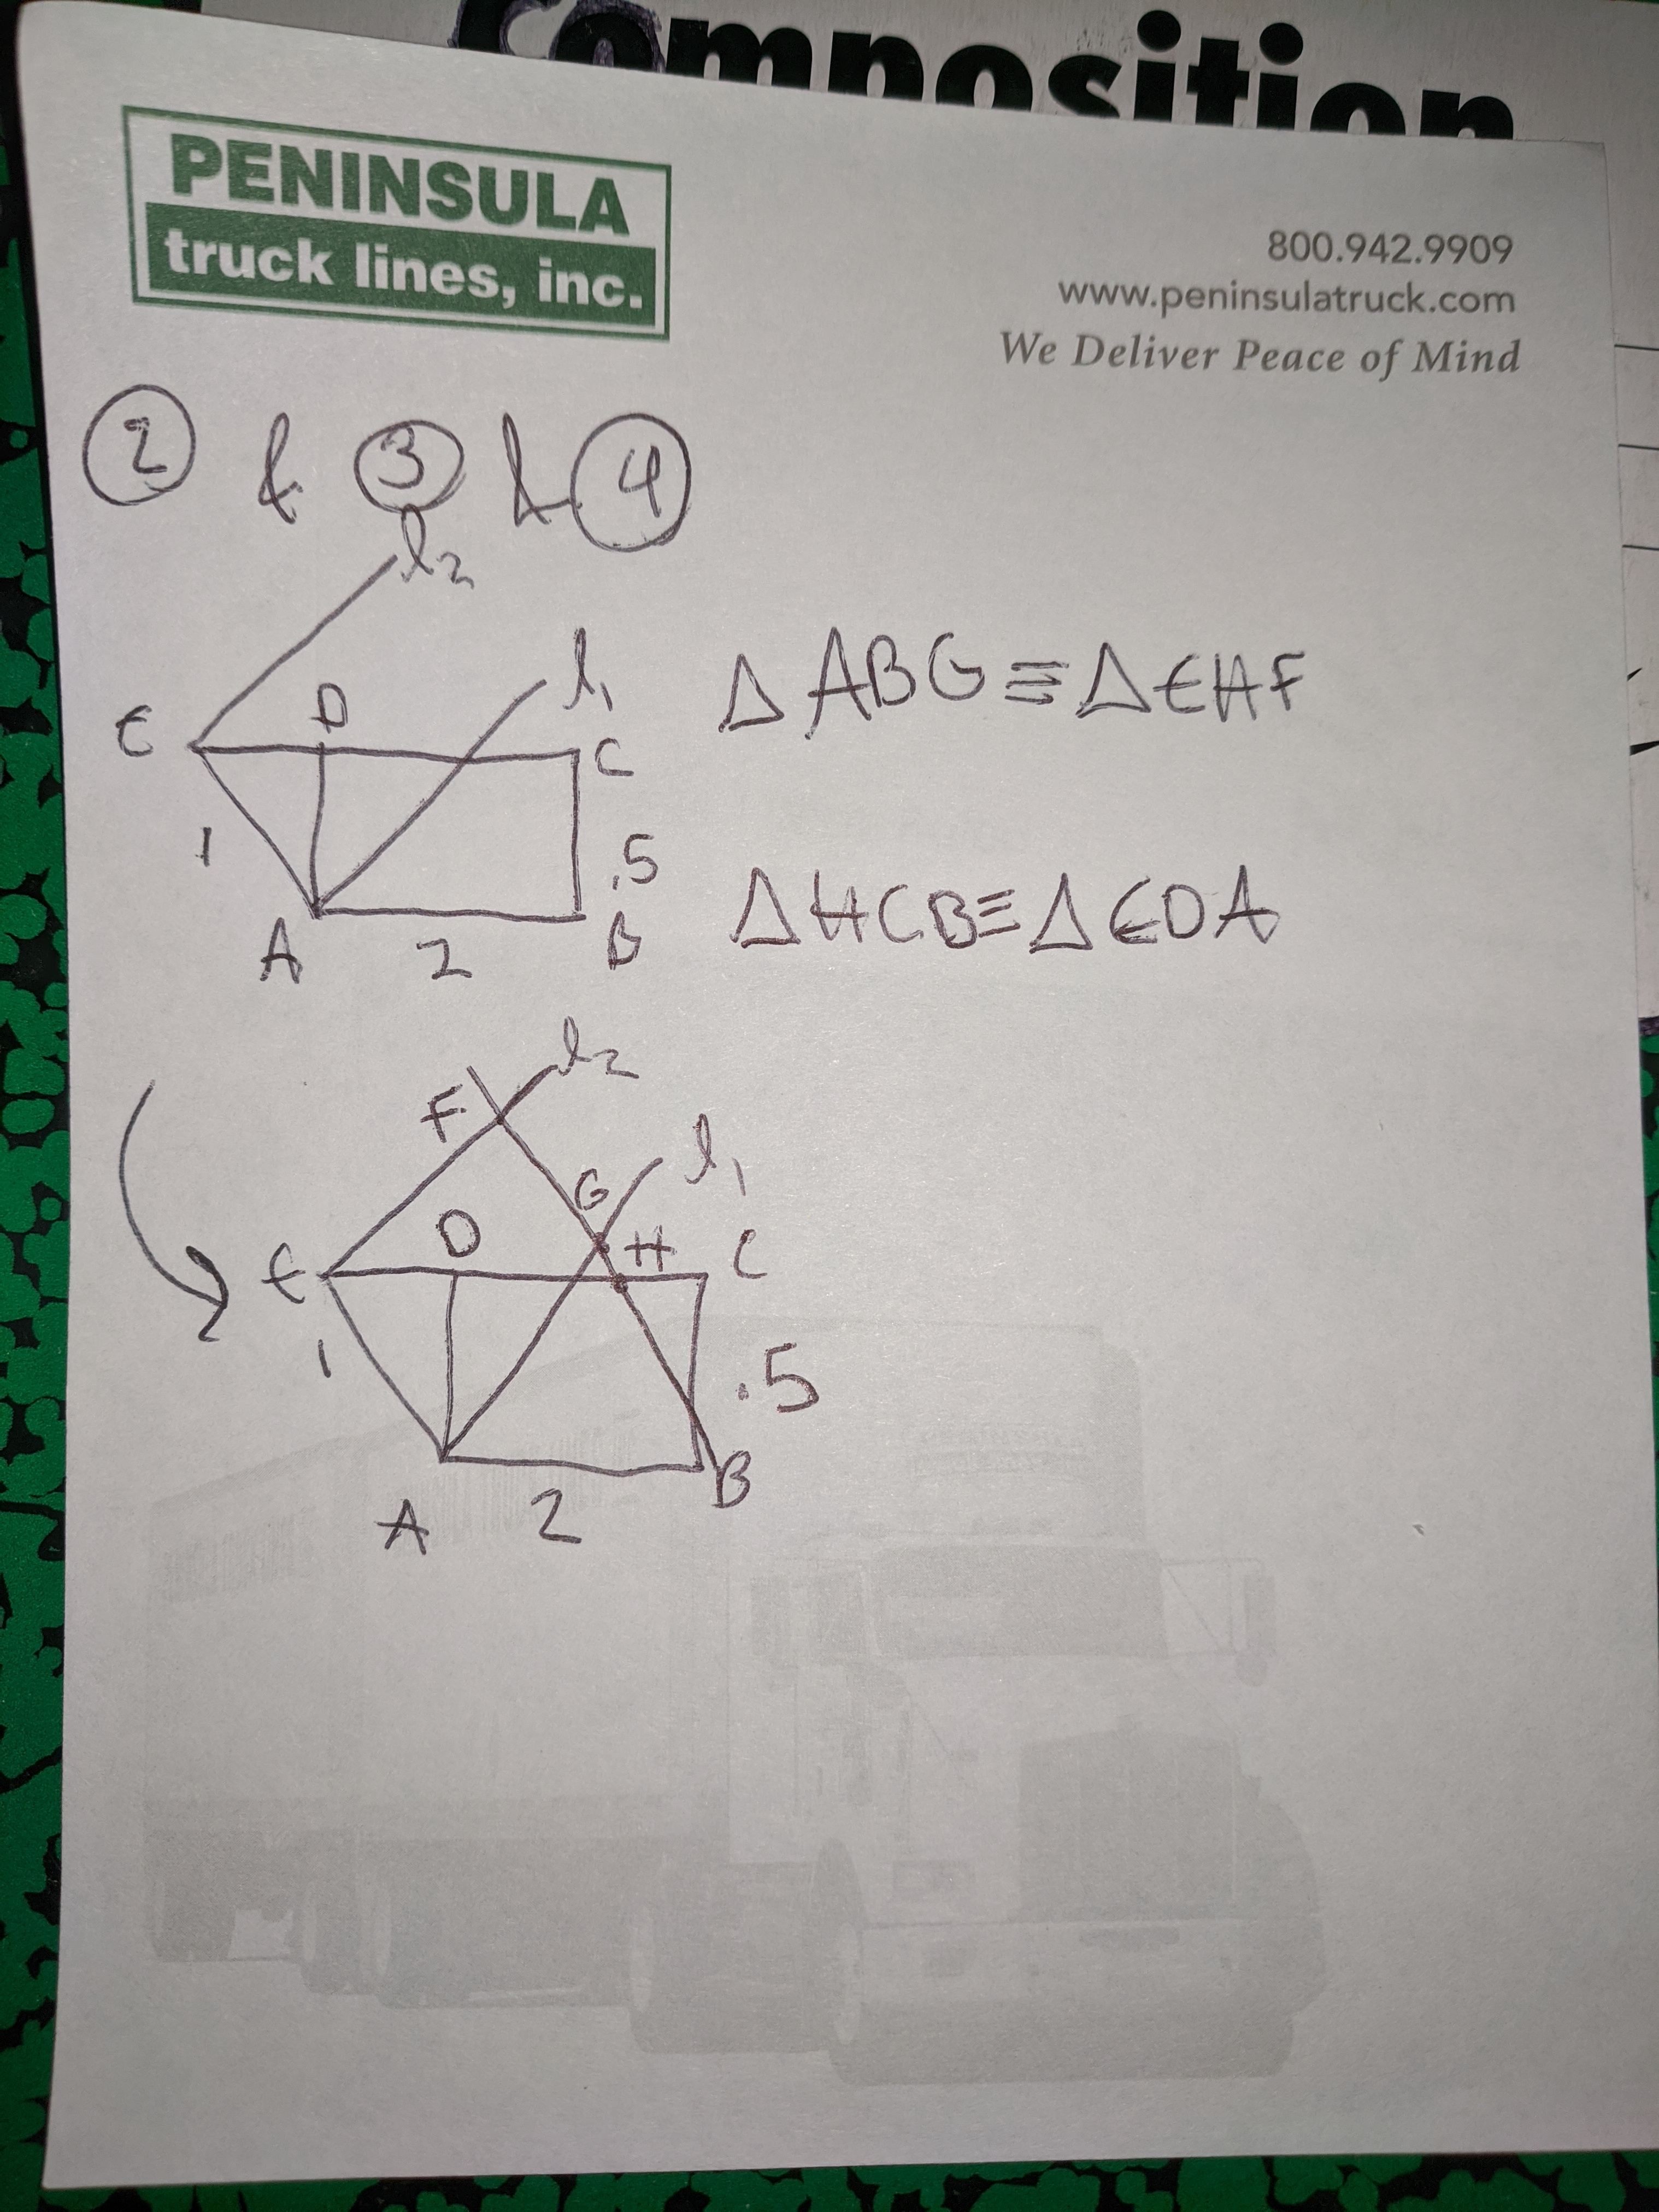 Composition
PENINSULA
truck lines, inc.
800.942.9909
www.peninsulatruck.com
We Deliver Peace of Mind
② & ③ & ④
l₂
l₁
E D C
1 .5
A 2 B
△ABG≡△EHF
△HCB≡△EDA
l₂
F
l₁
G
E D H C
1 .5
A 2 B